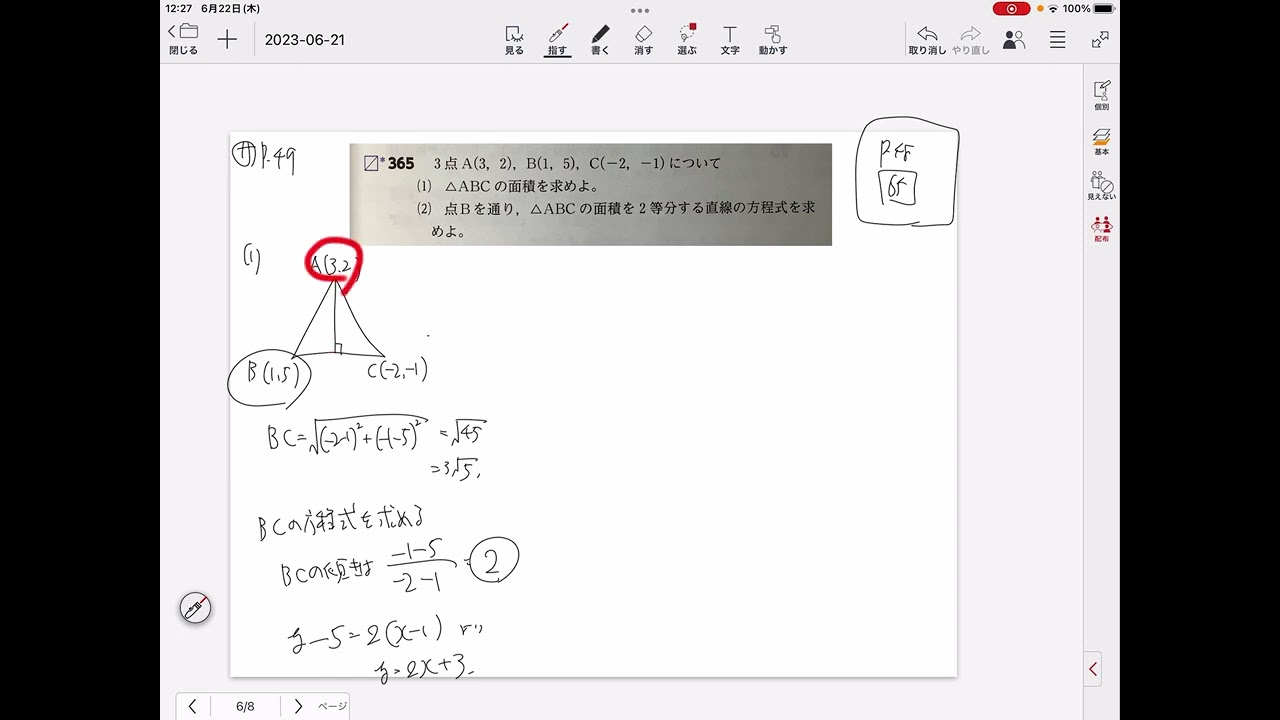 12:27 6月22日(木)
100%
閉じる
2023-06-21
見る 指す 書く 消す 選ぶ 文字 動かす
取り消し やり直し
個別
基本
見えない
配布
P.49
*365 3点A(3, 2), B(1, 5), C(−2, −1)について
(1) △ABCの面積を求めよ。
(2) 点Bを通り,△ABCの面積を2等分する直線の方程式を求
めよ。
65
(1)
A(3.2)
B(1,5) C(-2,-1)
BC=√(-2-1)²+(-1-5)² =√45
=3√5
BCの方程式を求める
BCの傾きは -1-5/-2-1 = 2
y-5=2(x-1) より
y=2x+3
6/8 ページ